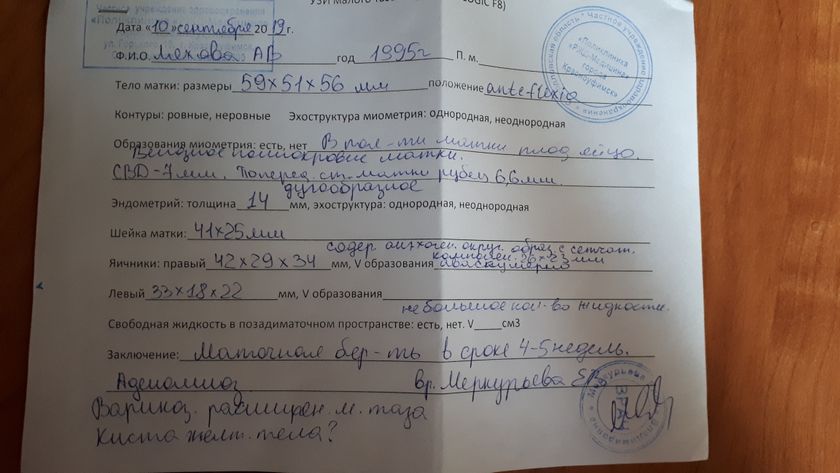 УЗИ малого таза LOGIC F8)
Частное учреждение здравоохранения
«Поликлиника
Дата «10» сентября 2019г.
Ф.И.О. Мехова АВ год 1995г П. м.
Тело матки: размеры 59×51×56 мм положение anteflexio
Контуры: ровные, неровные Эхоструктура миометрия: однородная, неоднородная
Образования миометрия: есть, нет В пол-ти матки плод яйцо.
Венозное полнокровие матки.
СВД-7мм. Поперед ст. матки рубец 6,6мм.
дугообразное
Эндометрий: толщина 14 мм, эхоструктура: однородная, неоднородная
Шейка матки: 41×25мм
содер анэхоген. округ. образ. с сетчат.
Яичники: правый 42×29×34 мм, V образования компонен. 26×23мм
аваскулярно
Левый 33×18×22 мм, V образования
небольшое кол-во жидкости.
Свободная жидкость в позадиматочном пространстве: есть, нет. V____см3
Заключение: Маточная бер-ть в сроке 4-5 недель.
Аденомиоз вр. Меркурьева
Варикоз. расширен. м. таза
Киста желт. тела?